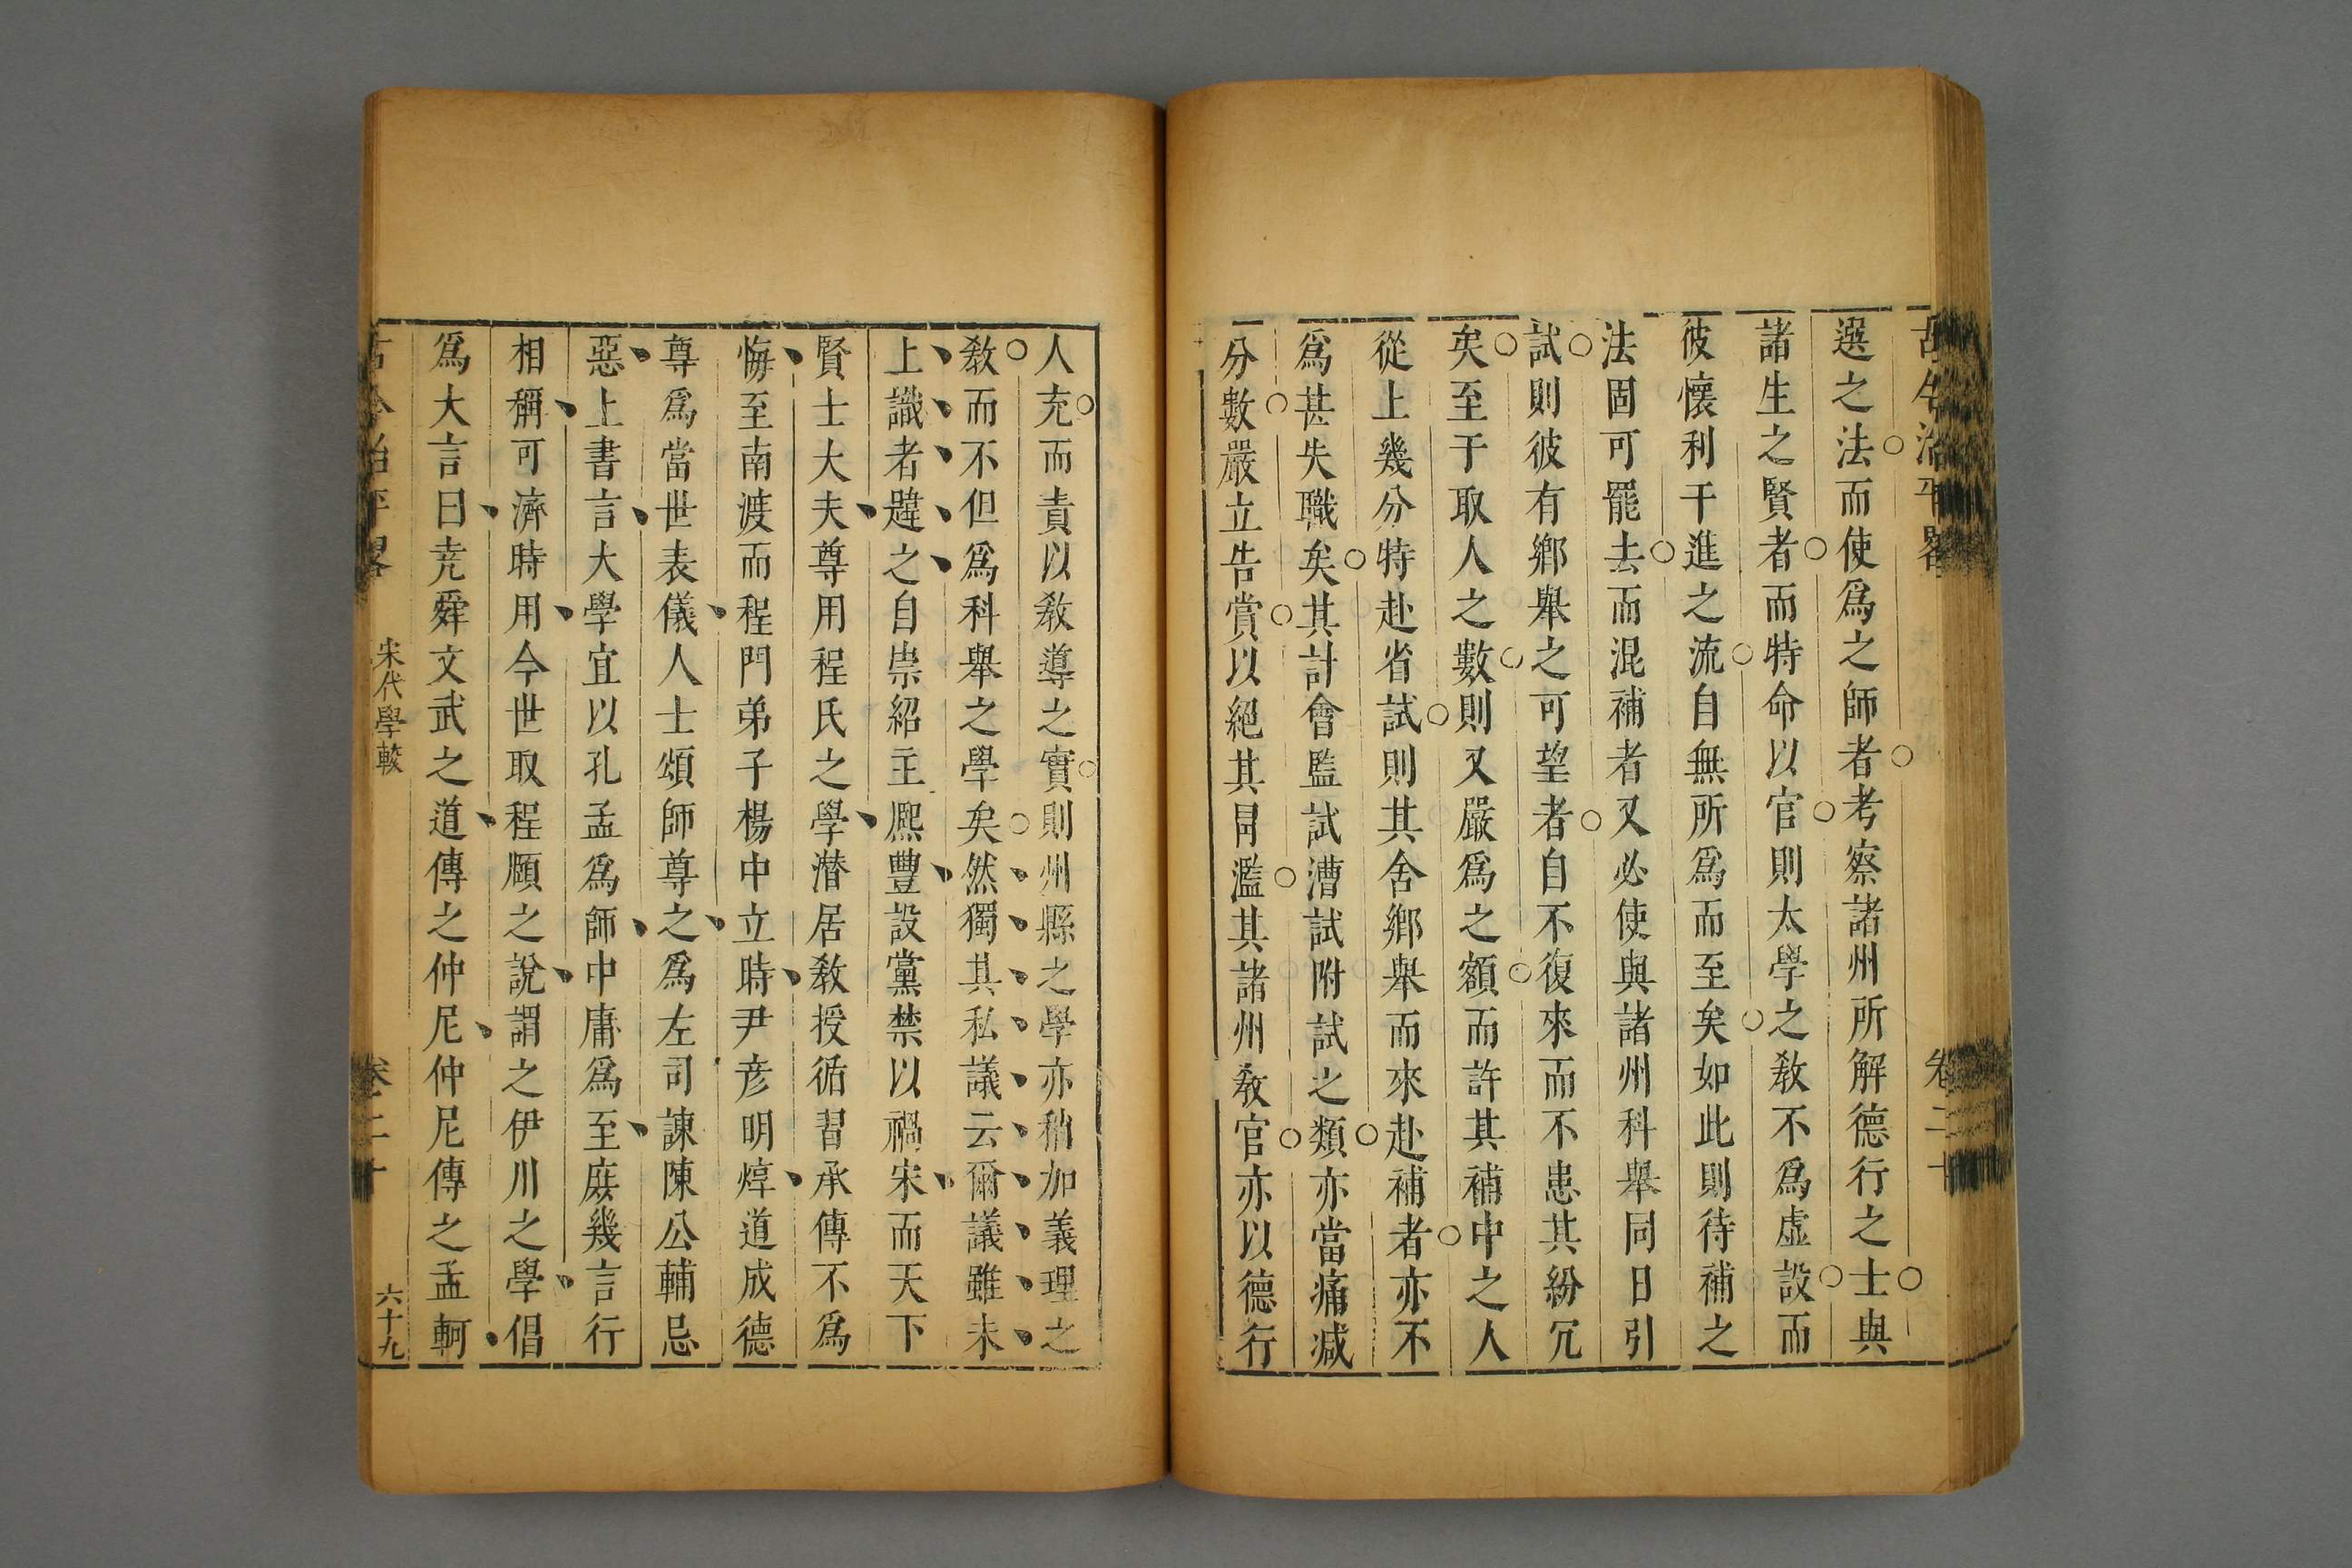 古今治平畧
卷二十
選之法而使爲之師者考察諸州所解德行之士與
諸生之賢者而特命以官則太學之敎不爲虛設而
彼懷利干進之流自無所爲而至矣如此則待補之
法固可罷去而混補者又必使與諸州科舉同日引
試則彼有鄉舉之可望者自不復來而不患其紛冗
矣至于取人之數則又嚴爲之額而許其補中之人
從上幾分特赴省試則其舍鄉舉而來赴補者亦不
爲甚失職矣其計會監試漕試附試之類亦當痛減
分數嚴立告賞以絕其冐濫其諸州敎官亦以德行
人充而責以敎導之實則州縣之學亦稍加義理之
敎而不但爲科舉之學矣然獨其私議云爾議雖未
上識者韙之自崇紹主熈豐設黨禁以禍宋而天下
賢士大夫尊用程氏之學潛居敎授循習承傳不爲
悔至南渡而程門弟子楊中立時尹彥明焞道成德
尊爲當世表儀人士頌師尊之爲左司諫陳公輔忌
惡上書言大學宜以孔孟爲師中庸爲至庶幾言行
相稱可濟時用今世取程頤之說謂之伊川之學倡
爲大言曰堯舜文武之道傳之仲尼仲尼傳之孟軻
古今治平畧
宋代學較
卷二十
六十九